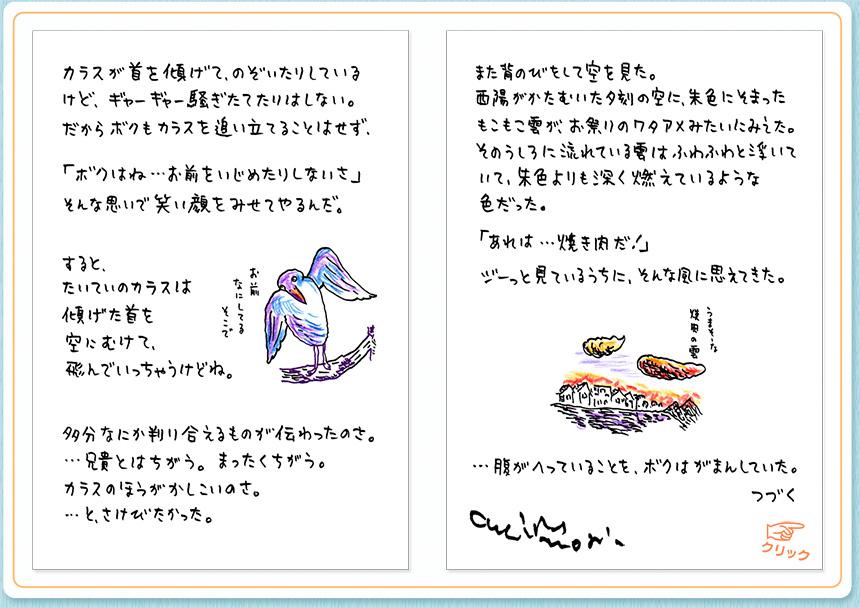 カラスが首を傾げて、のぞいたりしている
けど、ギャーギャー騒ぎたてたりはしない。
だからボクもカラスを追い立てることはせず、
「ボクはね…お前をいじめたりしないさ」
そんな思いで笑い顔をみせてやるんだ。
すると、
たいていのカラスは
傾げた首を
空にむけて、
飛んでいっちゃうけどね。
お前
なにしてる
そこで
多分なにか判り合えるものが伝わったのさ。
…兄貴とはちがう。まったくちがう。
カラスのほうがかしこいのさ。
…と、さけびたかった。
また背のびをして空を見た。
西陽がかたむいた夕刻の空に、朱色にそまった
もこもこ雲が、お祭りのワタアメみたいにみえた。
そのうしろに流れている雲はふわふわと浮いて
いて、朱色よりも深く燃えているような
色だった。
「あれは…焼き肉だ!」
ジーっと見ているうちに、そんな風に思えてきた。
うまそーな
焼肉の雲
…腹がへっていることを、ボクはがまんしていた。
つづく
クリック